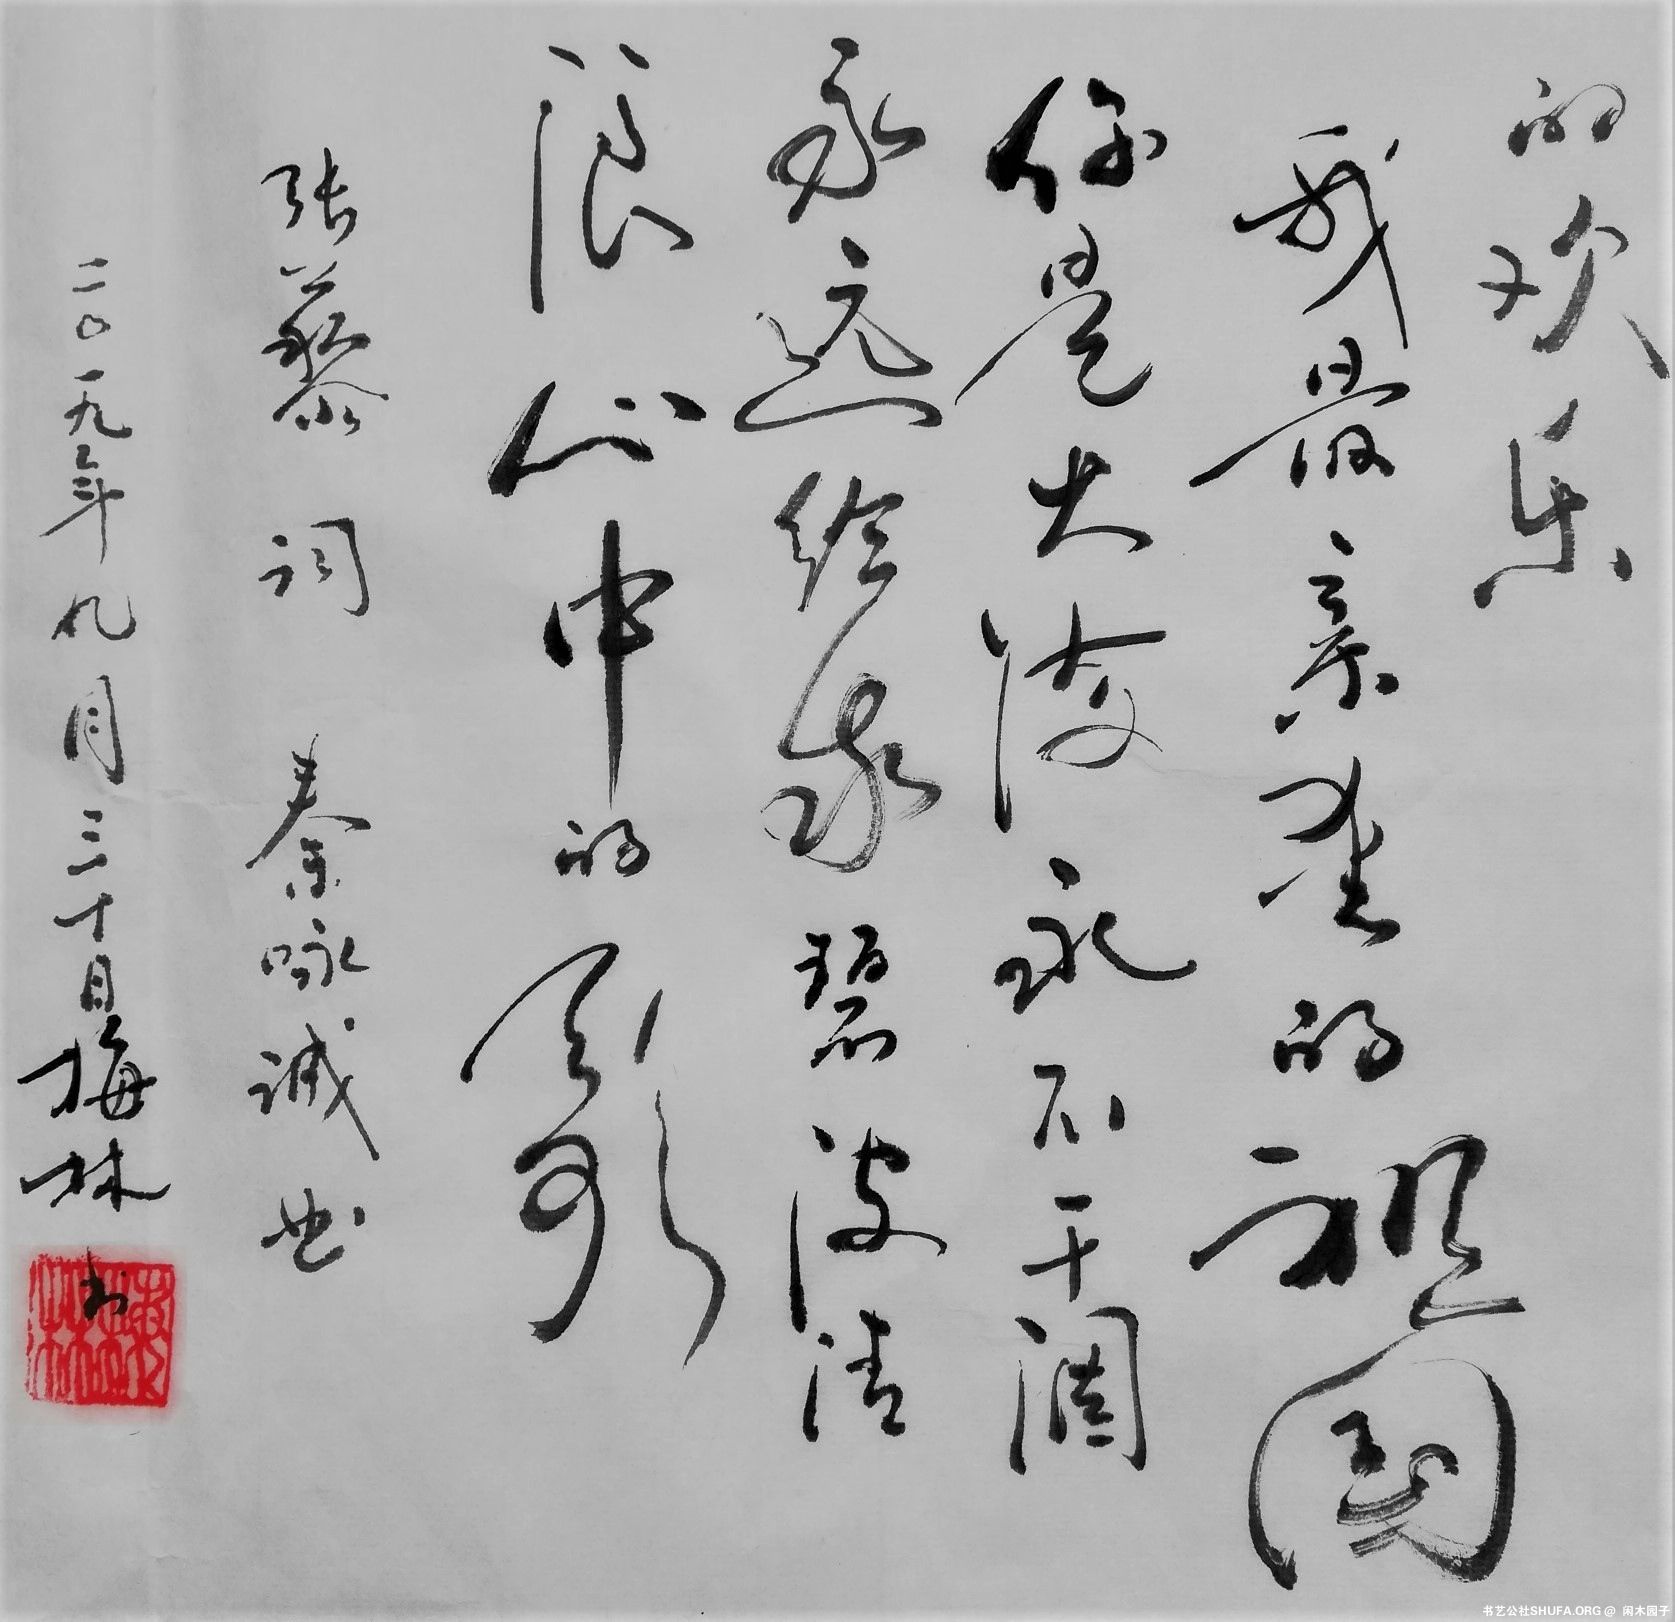 的欢乐
我最亲爱的祖国
你是大海永不干涸
永远给我碧波清
浪心中的歌
张藜 词 秦咏诚 曲
二〇一九年九月三十日梅林书
书艺公社SHUFA.ORG @ 闲木园子